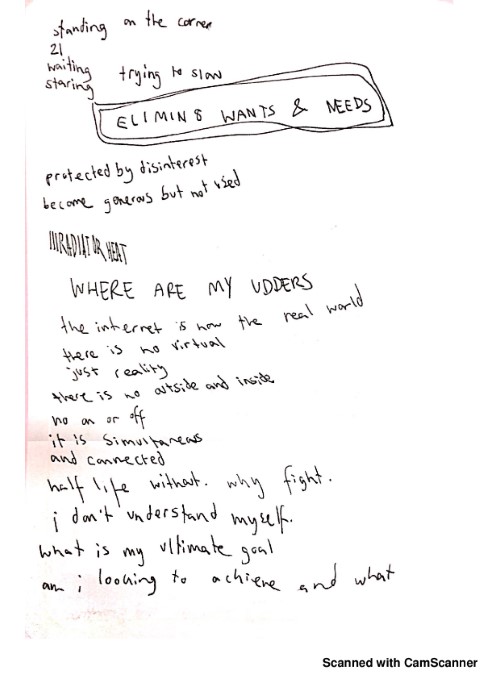 standing on the corner
21
waiting
staring trying to slow
ELIMIN8 WANTS & NEEDS
protected by disinterest
become generous but not used
RADIATOR HEAT
WHERE ARE MY UDDERS
the internet is now the real world
there is no virtual
just reality
there is no outside and inside
no on or off
it is simultaneous
and connected
half life without. why fight.
i don't understand myself.
what is my ultimate goal
am i looking to achieve and what
Scanned with CamScanner